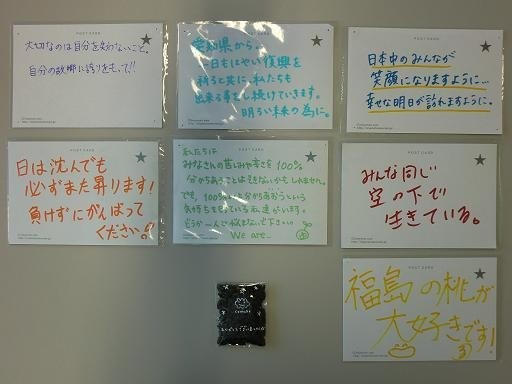 POST CARD
大切なのは自分を失わないこと。
自分の故郷に誇りをもって!!
POST CARD
愛知県から。
一日もはやい復興を
祈ると共に、私たちも
出来る事をし続けていきます。
明るい未来の為に。
POST CARD
日本中のみんなが
笑顔になりますように…
幸せな明日が訪れますように。
POST CARD
日は沈んでも
必ずまた昇ります!
負けずにがんばって
ください。
POST CARD
私たちは
みなさんの苦しみや辛さを100%
分かちあうことはできないかもしれません。
でも、100%
気持ちを
We are...
POST CARD
みんな同じ
空の下で
生きている。
POST CARD
福島の桃が
大好きです!